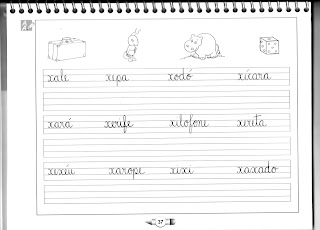 xale xepa xodó xícara
xará xerife xilofone xereta
xexéu xarope xixi xaxado
37